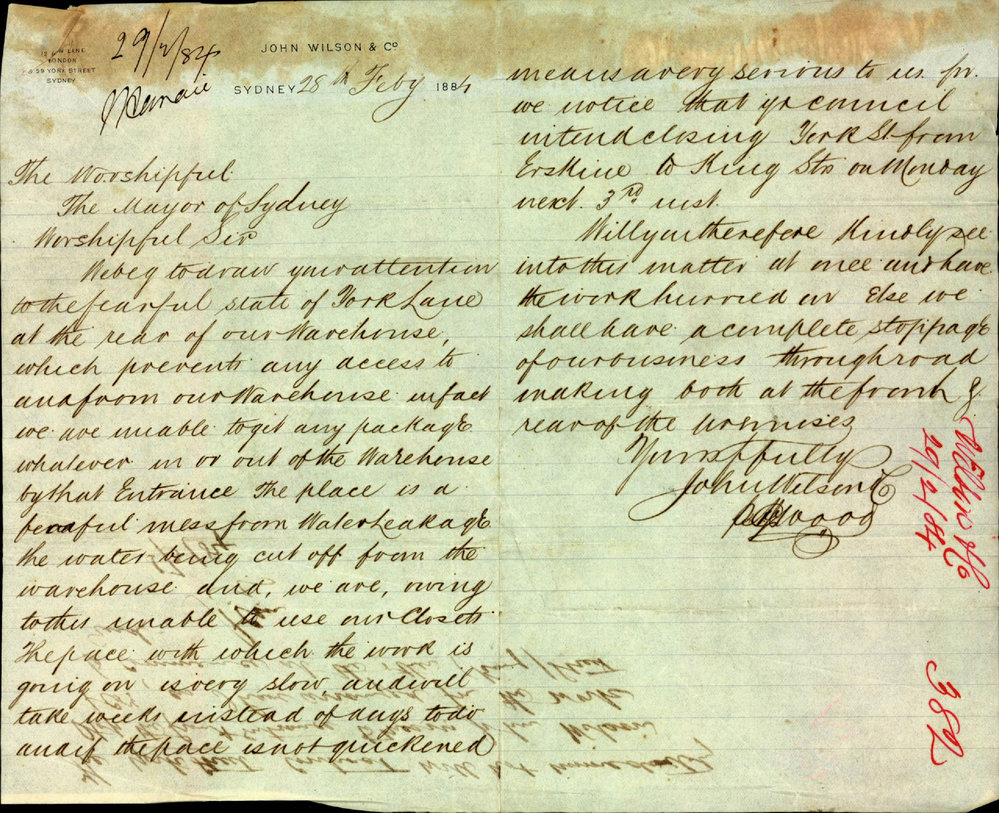 LONDON
& 59 YORK STREET
SYDNEY
29/2/84
JOHN WILSON & Co
SYDNEY 28th Feby 1884
The Worshipful
The Mayor of Sydney
Worshipful Sir
We beg to draw your attention
to the fearful state of York Lane
at the rear of our Warehouse,
which prevents any access to
and from our Warehouse in fact
we are unable to git any package
whatever in or out of the Warehouse
by that Entrance The place is a
fearful mess from Water Leakage
the water being cut off from the
warehouse and, we are, owing
to this unable to use our Closets
The pace with which the work is
going on is very slow, and will
take weeks instead of days to do
and if the pace is not quickened
means a very serious to us for
we notice that yr council
intend closing York St from
Erskine to King Sts on Monday
next 3rd inst.
Will you therefore Kindly see
into this matter at once and have
the work hurried on Else we
shall have a complete stoppage
of our business through road
making both at the front &
rear of the premises
Yours ffully
John Wilson & Co
Wood
29/2/84
382